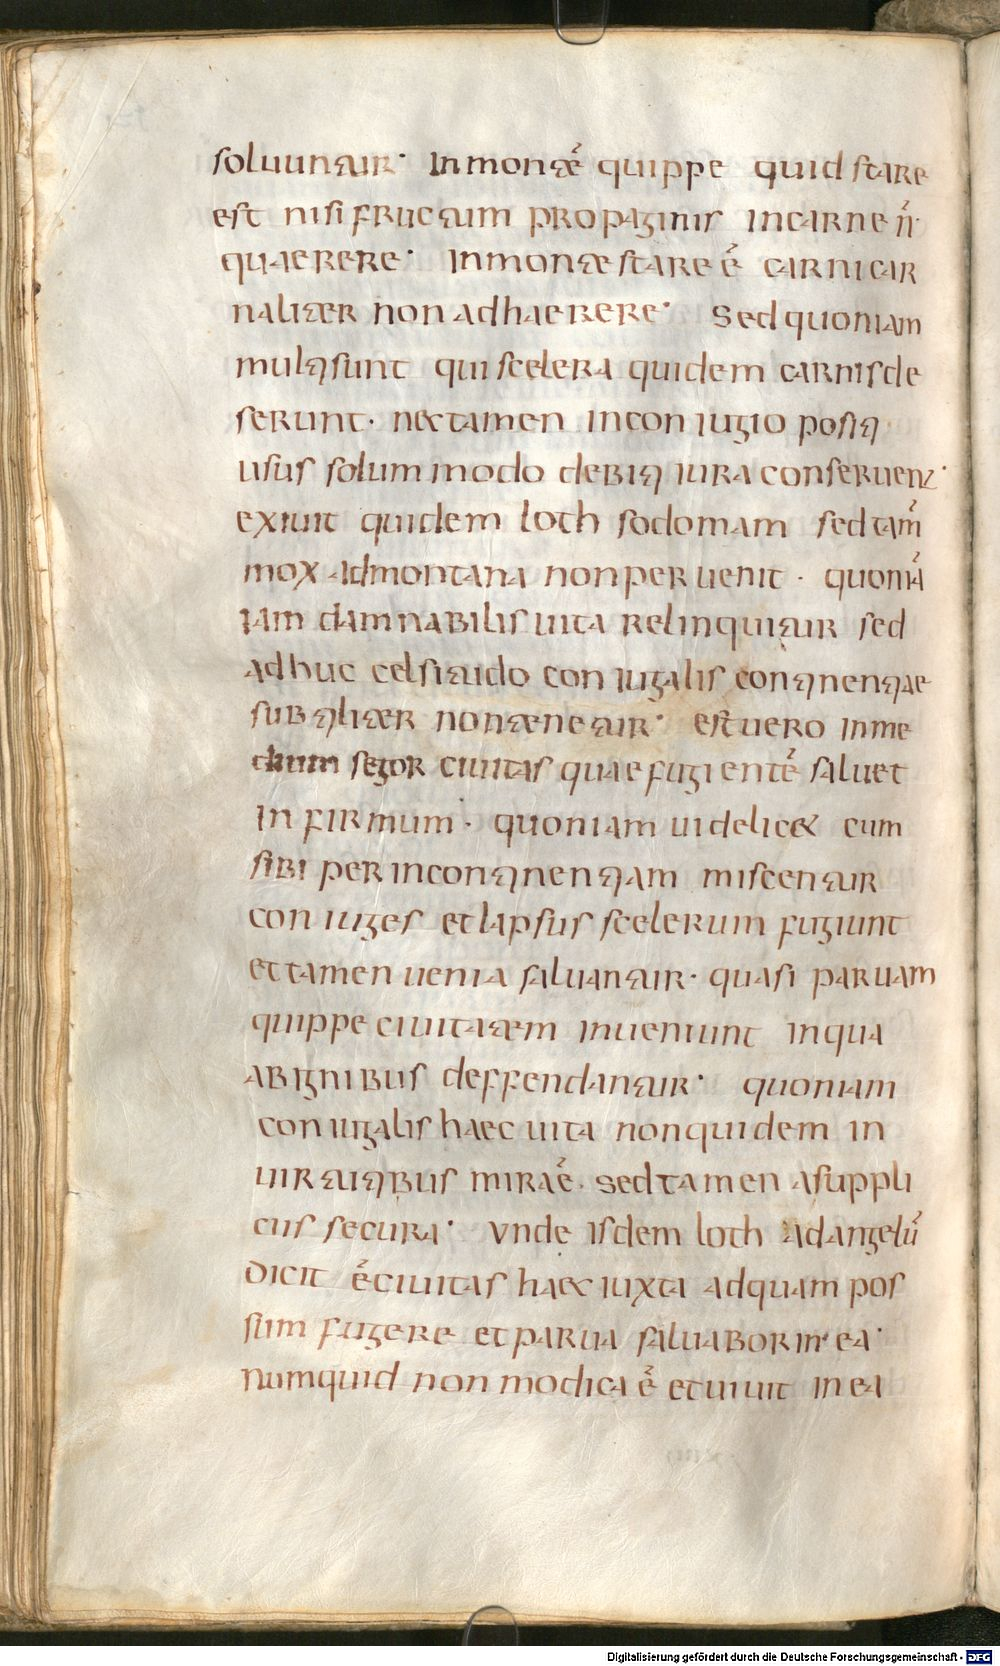 soluuntur· In monte ē quippe quid stare
est nisi fructum propaginis in carne n̄·
quaerere· In monte stare ē carni car
naliter non adhaerere· Sed quoniam
multi sunt qui scelera quidem carnis de
serunt· nec tamen in coniugio positi
usus solummodo debiti iura conseruent·
exiuit quidem loth sodomam sed tam̄
mox ad montana non peruenit· quoniā
iam damnabilis uita relinquitur sed
adhuc celsitudo coniugalis continentiae
subtiliter non tenetur· est uero in me
dium segor ciuitas quae fugientē saluet
infirmum· quoniam uidelicet cum
sibi per incontinentiam miscentur
coniuges et lapsus scelerum fugiunt
et tamen uenia saluantur· quasi paruam
quippe ciuitatem inueniunt in qua
ab ignibus deffendantur· quoniam
coniugalis haec uita non quidem in
uirtutibus mira ē· sed tamen a suppli
ciis secura· Vnde isdem loth ad angelū
dicit ē ciuitas haec iuxta ad quam pos
sum fugere et parua saluabor in ea·
numquid non modica ē et uiuit in ea
Digitalisierung gefördert durch die Deutsche Forschungsgemeinschaft - DFG